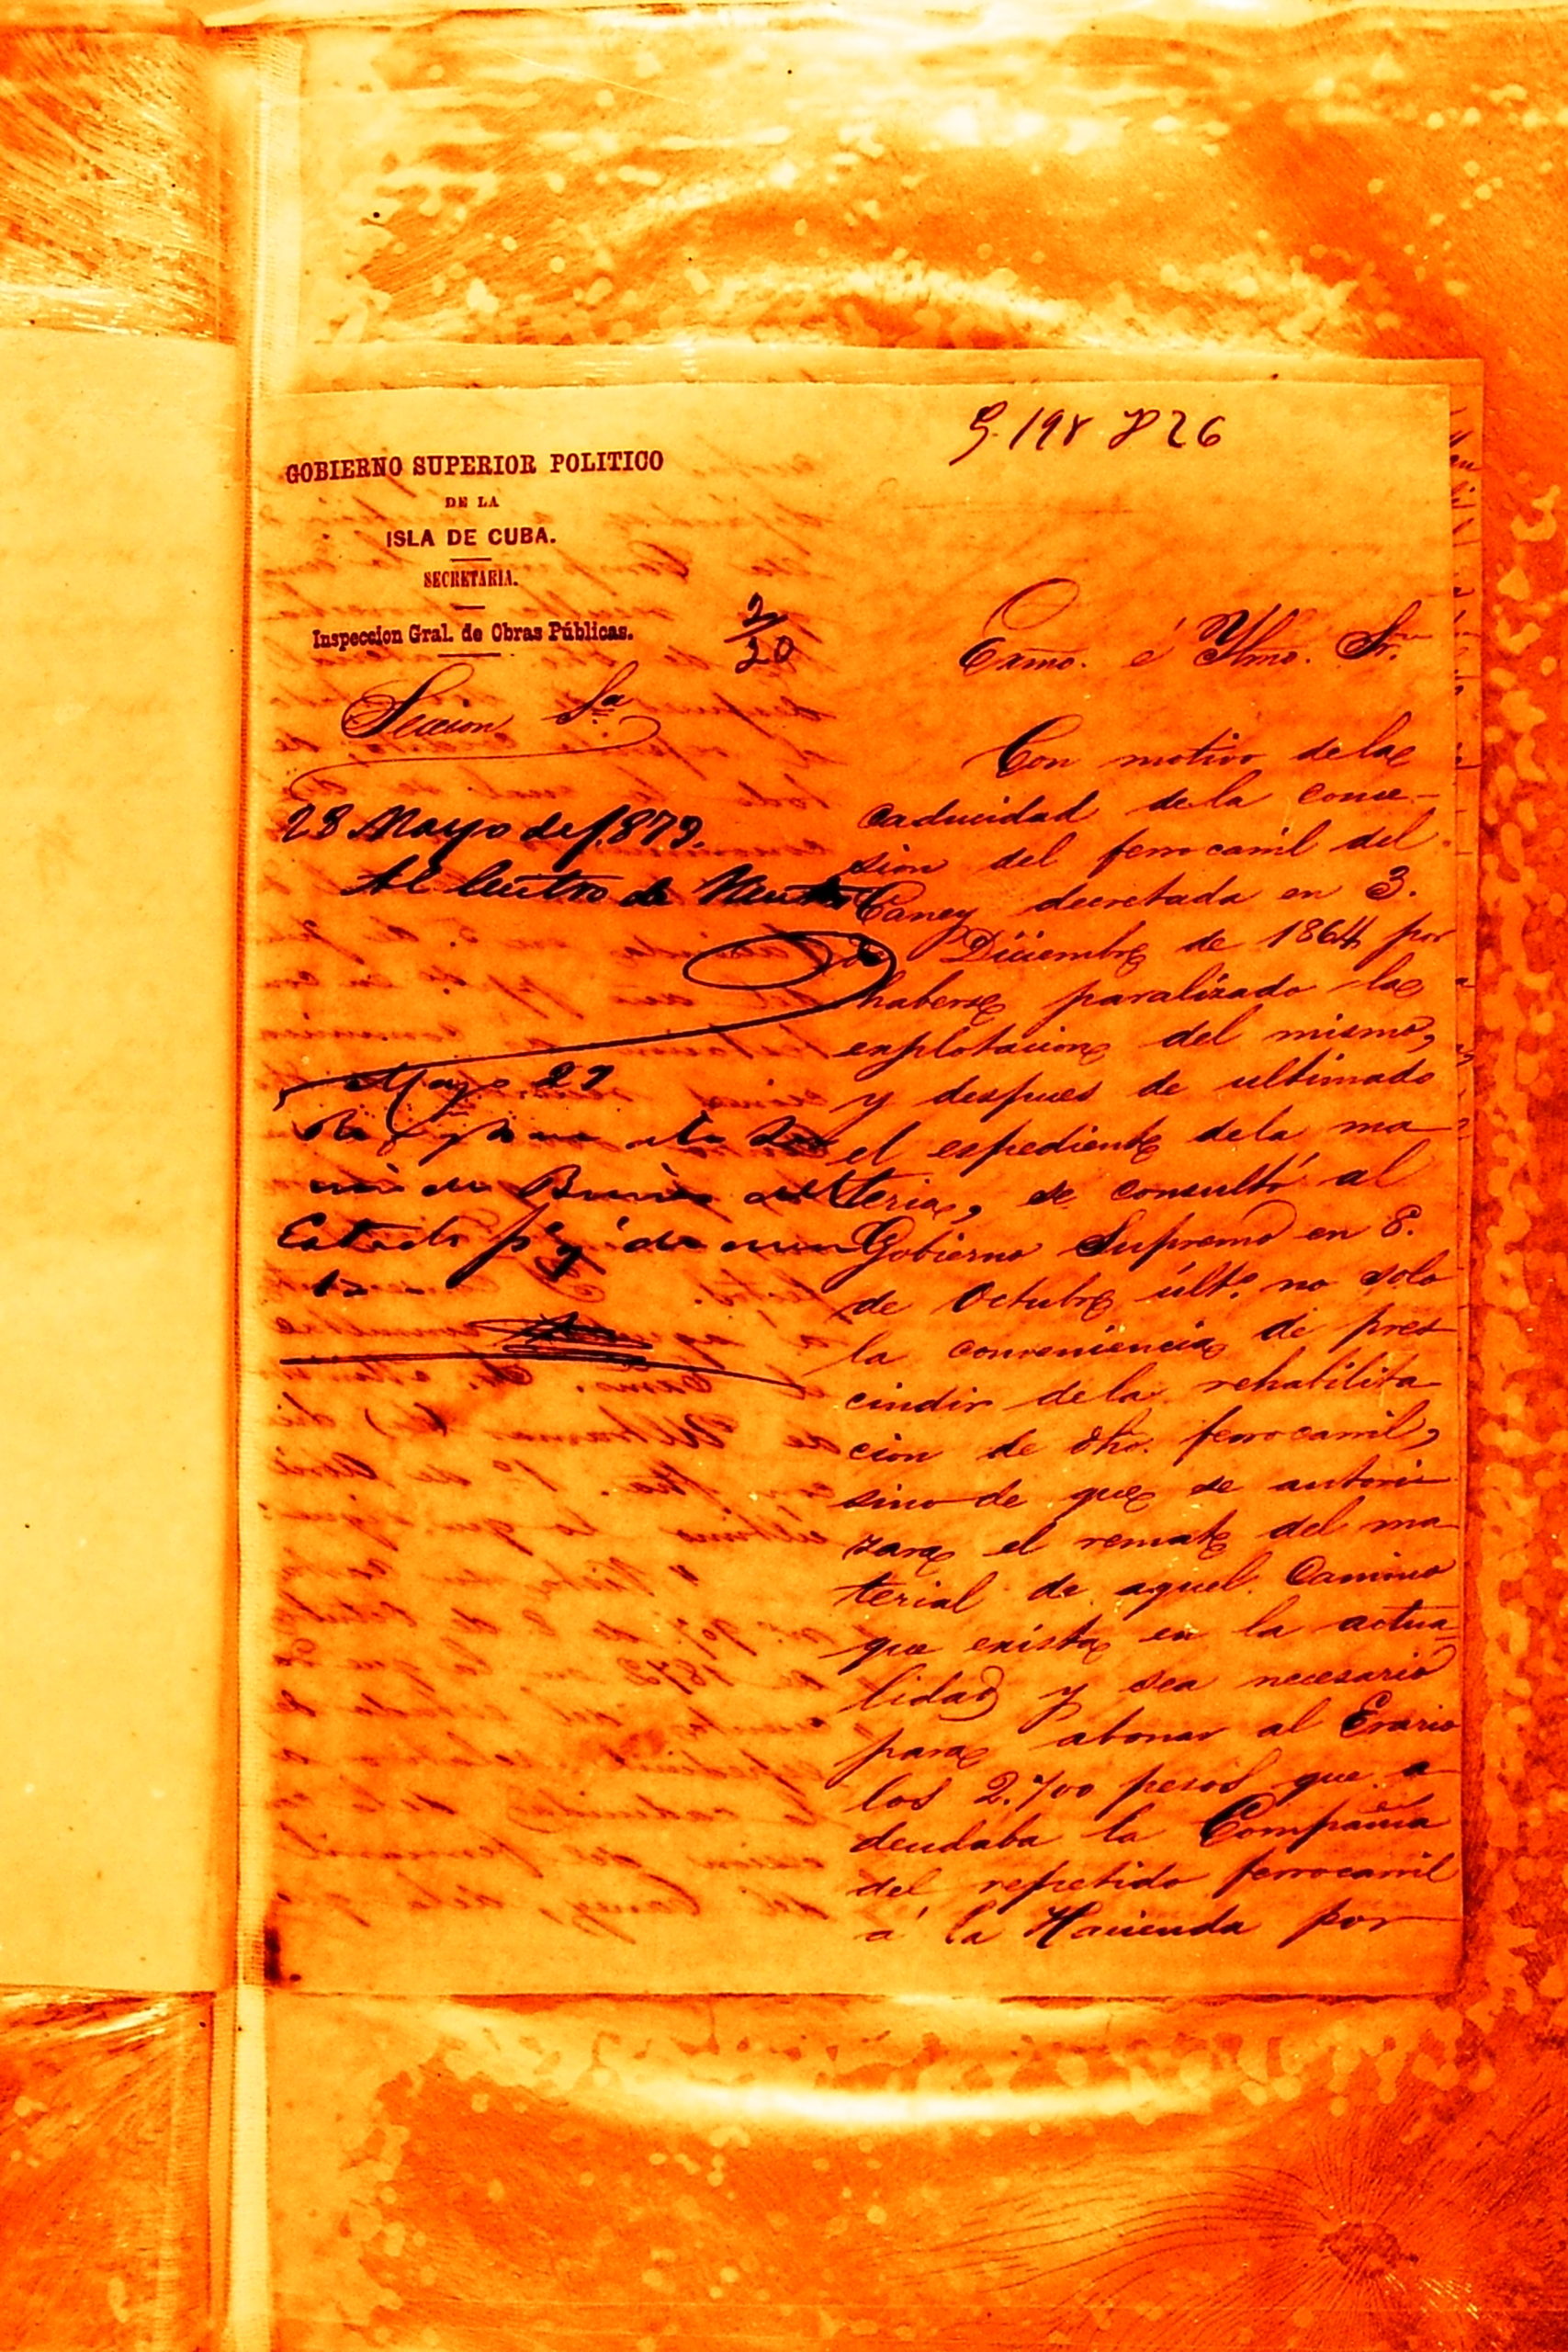 GOBIERNO SUPERIOR POLITICO
DE LA
ISLA DE CUBA.
SECRETARIA.
Inspeccion Gral. de Obras Públicas.
2/20
Seccion
28 Mayo de 1873.
Al Centro de
Mayo 29
Estado
Exmo. é Yltmo. Sr.
Con motivo de la
caducidad de la conce-
sion del ferrocarril del
Caney decretada en 3.
de Diciembre de 1864 por
haberse paralizado la
explotacion del mismo,
y despues de ultimado
el espediente de la ma
teria, se consultó al
Gobierno Supremo en 8.
de Octubre últº. no solo
la conveniencia de pres
cindir de la rehabilita
cion de dho. ferrocarril,
sino de que se autori
zara el remate del ma
terial de aquel Camino
que exista en la actua
lidad y sea necesario
para abonar al Erario
los 2.700 pesos que a
deudaba la Compañia
del repetido ferrocarril
á la Hacienda por